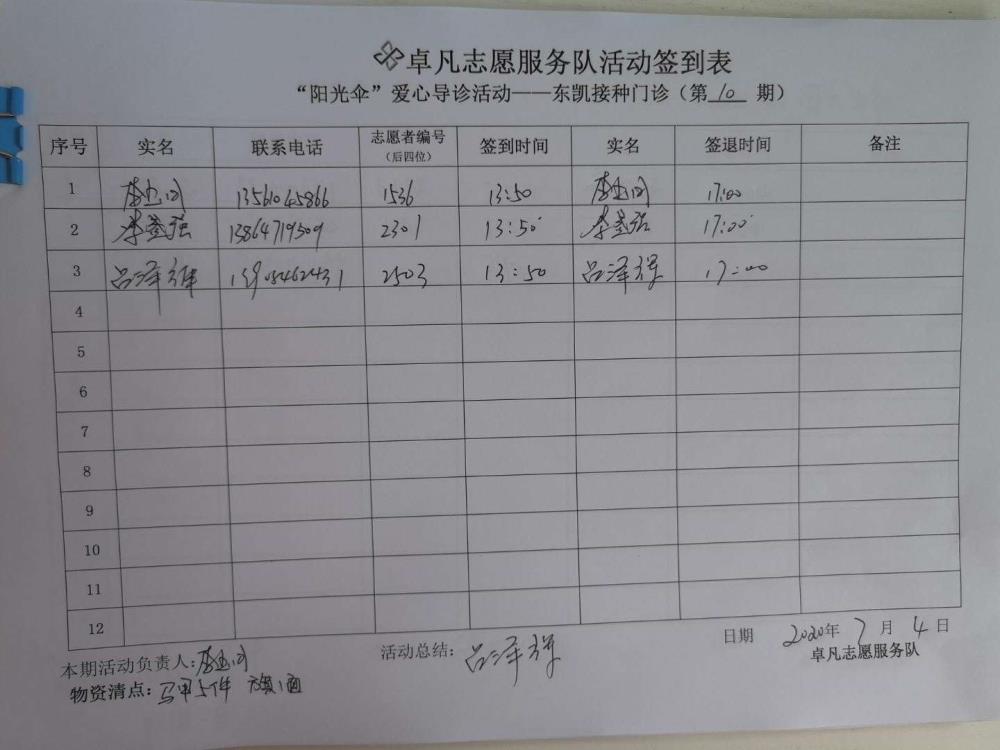 卓凡志愿服务队活动签到表
“阳光伞”爱心导诊活动——东凯接种门诊（第 10 期）
序号 实名 联系电话 志愿者编号（后四位） 签到时间 实名 签退时间 备注
1 13561045866 1536 13:50 17:00
2 李基强 13864719509 2301 13:50 李基强 17:00
3 吕泽祥 2503 13:50 吕泽祥 17:00
4
5
6
7
8
9
10
11
12
本期活动负责人: 活动总结: 吕泽祥 日期 2020年 7 月 4 日
物资清点: 马甲5件 旗1面 卓凡志愿服务队